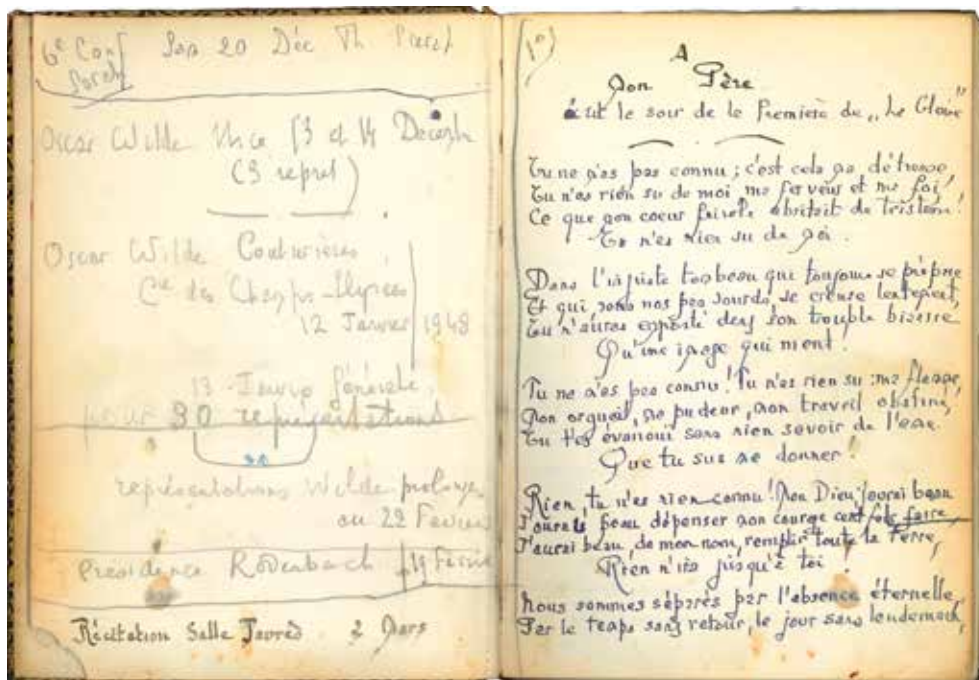 6e Conf Sam 20 Déc Th
Oscar Wilde Nice 13 et 14 Décembre
(3 repret)
Oscar Wilde Couturières
Cie des Champs-Elysées
12 Janvier 1948
13 Janvier Générale
pour 30 représentations
représentations Wilde prolongées
au 22 Fevrier
présidence Rodenbach 19 Février
Récitation Salle 2 Mars
1°)
A
Mon Père
écrit le soir de la Première de „Le Glaive"
Tu ne m'as pas connu ; c'est cela ma détresse,
Tu n'as rien su de moi, ma ferveur et ma foi,
Ce que mon coeur abritait de tristesse !
Tu n'as rien su de moi.
Dans l'injuste tombeau qui toujours se prépare
Et qui, sous nos pas sourds, se creuse lentement,
Tu n'auras emporté dans son trouble bizarre
Qu'une image qui ment !
Tu ne m'as pas connu ! Tu n'as rien su : ma flamme,
Mon orgueil, ma pudeur, mon travail obstiné,
Tu t'es évanoui sans rien savoir de l'âme
Que tu sus me donner !
Rien, tu n'as rien connu ! Mon Dieu j'aurai beau
J'aurais beau dépenser mon courage cent fois faire
J'aurai beau, de mon nom, remplir toute la terre,
Rien n'ira jusqu'à toi !
Nous sommes séparés par l'absence éternelle,
Par le temps sans retour, le jour sans lendemain,